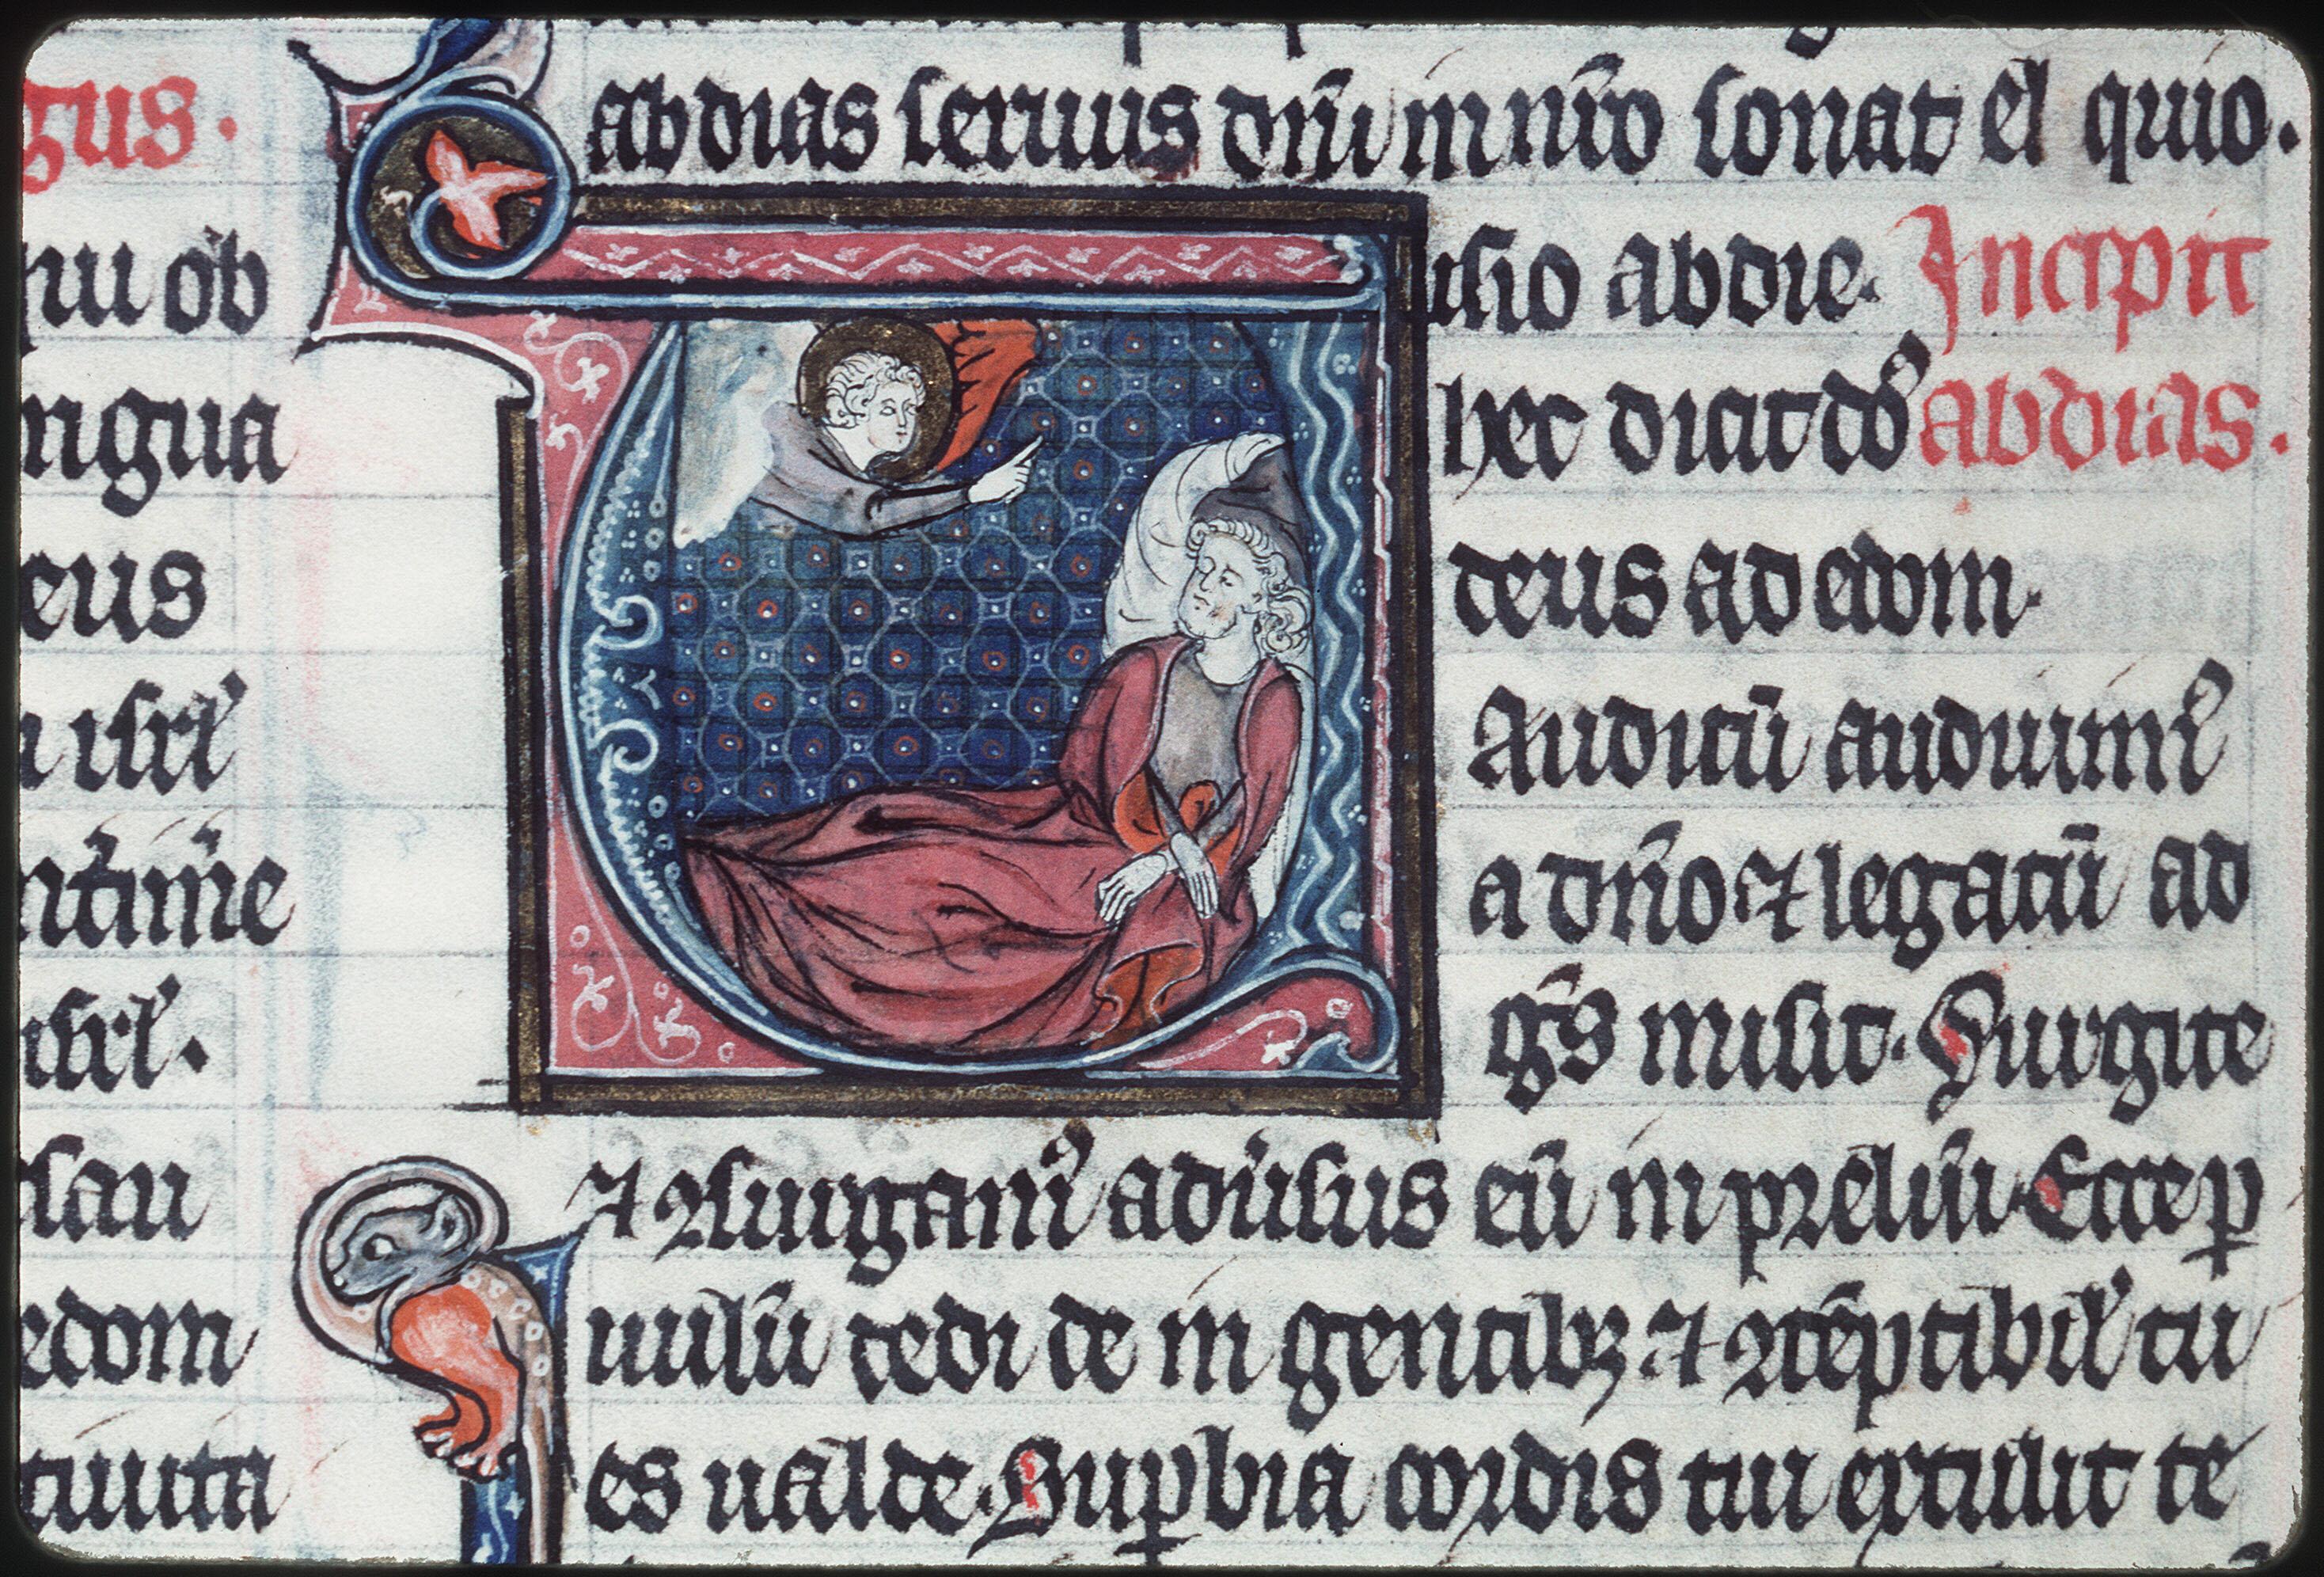 gus.
nu ob
ngua
eus
isrl'
isrl'.
esau
edom
abdias seruus dñi in nr̃o sonat el quio.
uisio abdie. Incipit
hec dicit dñs abdias.
deus ad edom.
Auditũ audiuimꝰ
a dño ⁊ legatũ ad
gẽs misit. Surgite
⁊ ꝯsurgamꝰ adũsus eũ in prelium. Ecce ꝑ
uulũ dedi te in gentibꝫ ⁊ ꝯtẽptibil' tu
es ualde. Suꝑbia cordis tui extulit te